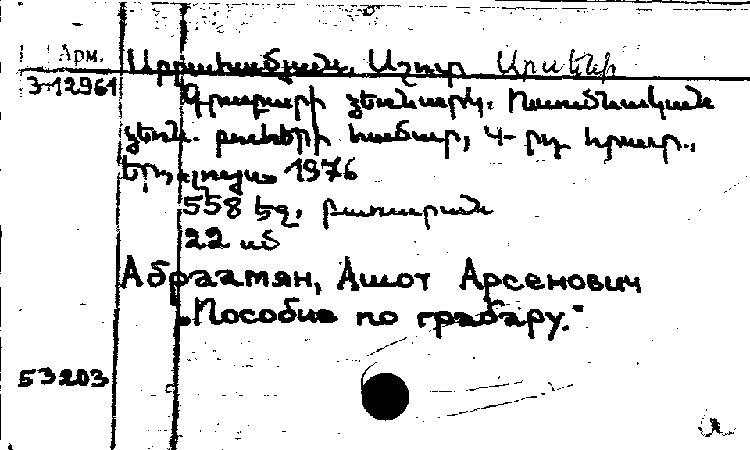 Арм. Աբրահամյան, Աշոտ Արսենի
3-12961 Գրաբարի ձեռնարկ. Ուսումնական
ձեռն. բուհերի համար, 4-րդ հրատ.,
Եր., լույս 1976
558 էջ, բառարան
22 սմ
Абраамян, Ашот Арсенович
„Пособие по грабару."
53203